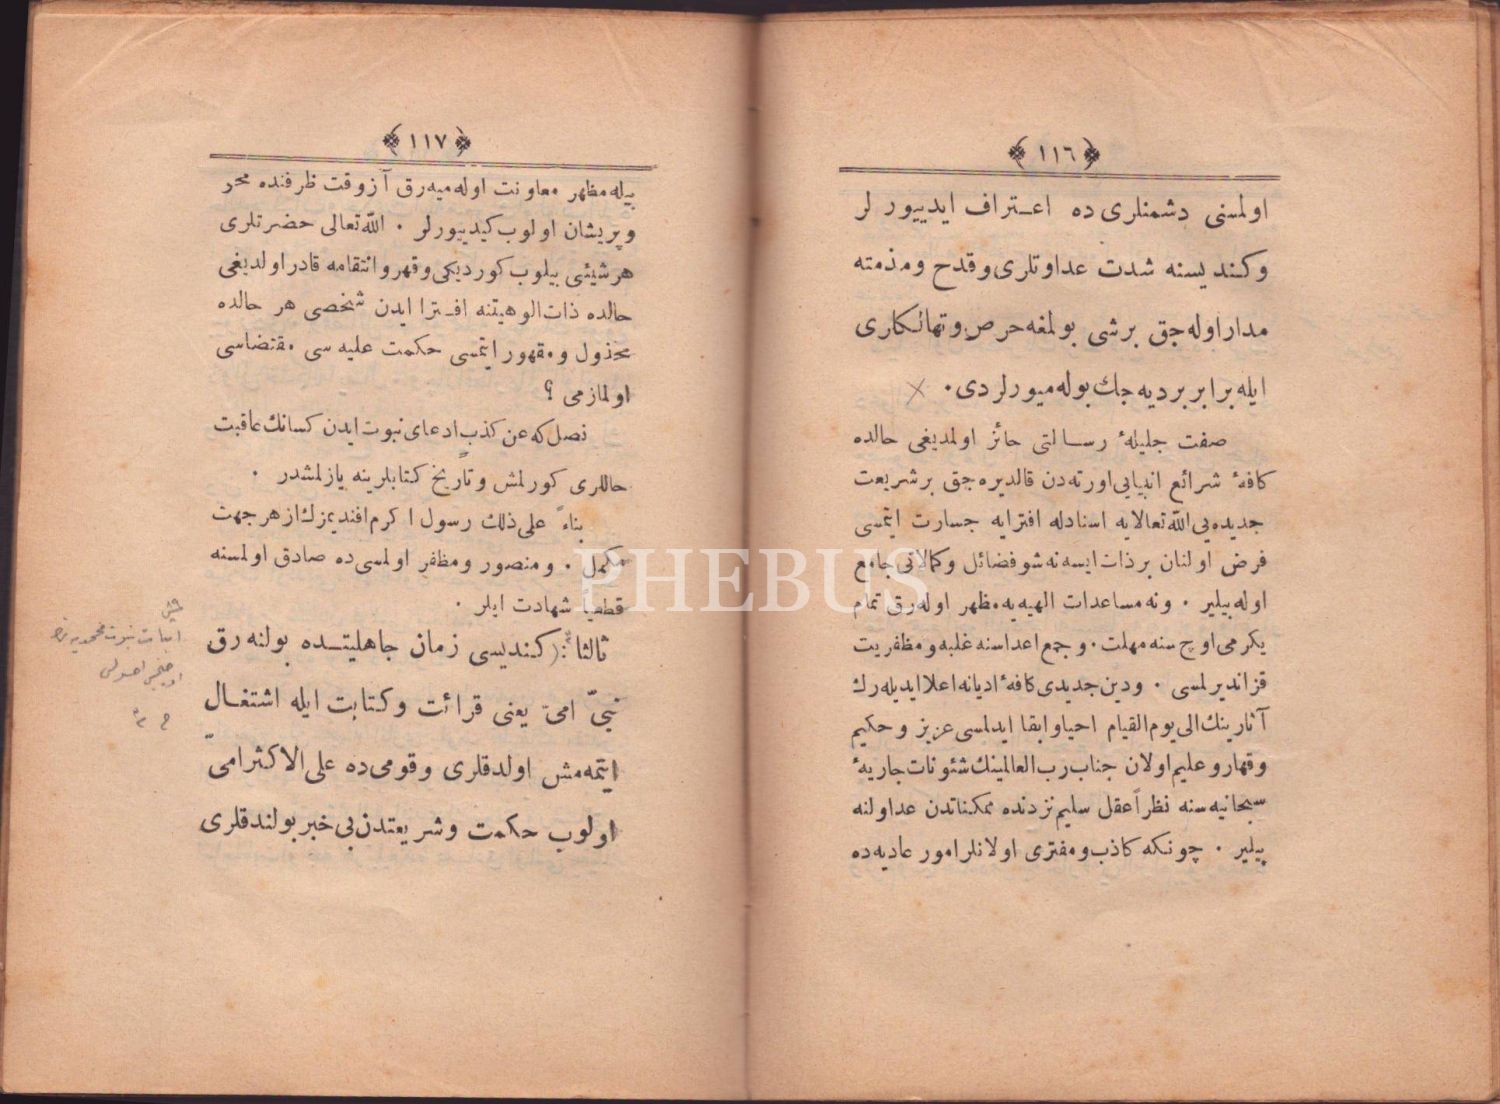 ﴿ ١١٦ ﴾
اولمسنی دشمنلری ده اعتراف ایدییورلر
وکندیسنه شدت عداوتلری وقدح ومذمته
مدار اوله جق برشی بولمغه حرص وتهالکاری
ایله برابر بردیه جك بوله میورلردی ٠
صفت جلیلهٔ رسالتی حائز اولمدیغی حالده
کافهٔ شرائع انبیایی اورته دن قالدیره جق برشریعت
جدیده یی الله تعالایه اسنادله افترایه جسارت ایتمسی
فرض اولنان برذات ایسه نه شو فضائل وکمالاتی جامع
اوله بیلیر ٠ ونه مساعدات الهیه یه مظهر اوله رق تمام
یکرمی اوچ سنه مهلت ٠ وجمع اعداسنه غلبه ومظفریت
قزاندیرلسی ٠ ودین جدیدی کافهٔ ادیانه اعلا ایدیله رك
آثارینك الی یوم القیام احیا وابقا ایدلمسی عزیز وحکیم
وقهار وعلیم اولان جناب رب العالمینك شئونات جاریهٔ
سبحانیه سنه نظراً عقل سلیم نزدنده ممکناتدن عد اولنه
بیلیر ٠ چونکه کاذب ومفتری اولانلر امور عادیه ده
﴿ ١١٧ ﴾
بیله مظهر معاونت اوله میه رق آز وقت ظرفنده محو
وپریشان اولوب کیدییورلر ٠ الله تعالی حضرتلری
هرشیئی بیلوب کوردیکی وقهر وانتقامه قادر اولدیغی
حالده ذات الوهیتنه افترا ایدن شخصی هر حالده
مخذول ومقهور ایتمسی حکمت علیه سی مقتضاسی
اولمازمی ؟
نصل که عن کذب ادعای نبوت ایدن کسانك عاقبت
حاللری کورلمش وتاریخ کتابلرینه یازلمشدر ٠
بناءً علی ذلك رسول اکرم افندیمزك از هرجهت
مکمل ٠ ومنصور ومظفر اولمسی ده صادق اولمسنه
قطعیاً شهادت ایلر ٠
ثالثاً : (کندیسی زمان جاهلیتده بولنه رق
نبیّ امیّ یعنی قرائت وکتابت ایله اشتغال
ایتمه مش اولدقلری وقومی ده علی الاکثر امی
اولوب حکمت وشریعتدن بی خبر بولندقلری
اثبات نبوت محمدیه نك
PHEBUS